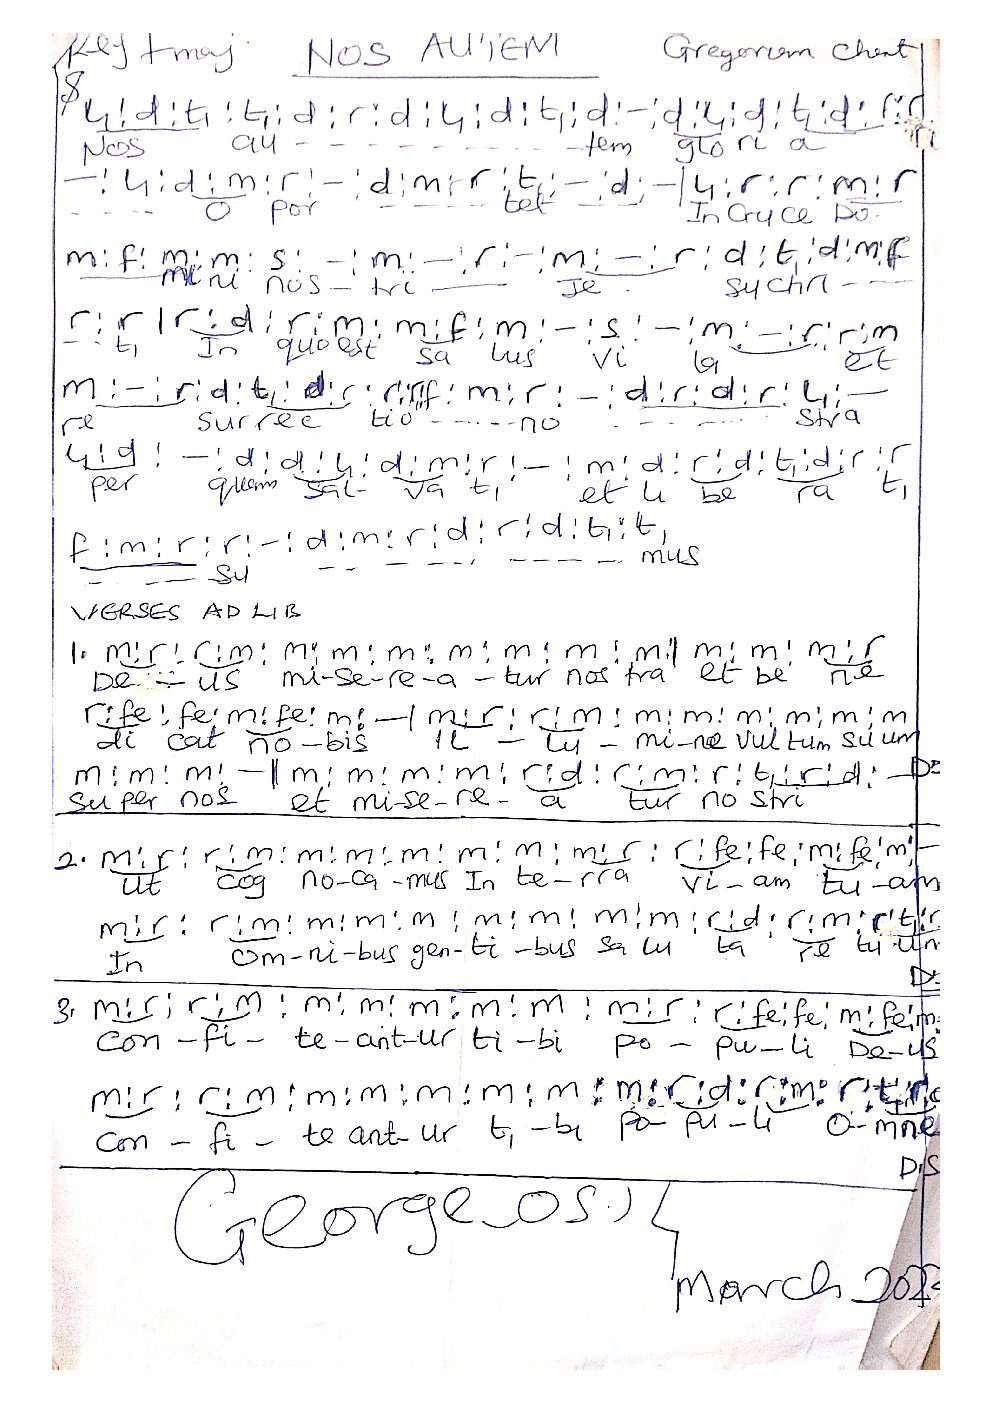 Key f maj. NOS AUTEM Gregorian Chant
l₁:d:t₁:t₁:d:r:d:l₁:d:t₁:d:-:d:l₁:d:t₁:d:r:r
NOS au - - - - - - - - tem glo ri a
-:l₁:d:m:r:-:d:m:r:t₁:-:d:-|l₁:r:r:m:r
- - - - O por - - - - - tet - - - In Cruce Do.
m:f:m:m:s:-:m:-:r:-:m:-:r:d:t₁:d:m:f
mi ni nos - tri Je su chri - - - -
r:r|r:d:r:m:m:f:m:-:s:-:m:-:r:r:m
- - t₁ In quo est sa lus vi ta et
m:-:r:d:t₁:d:r:r:f:m:r:-:d:r:d:r:l₁:-
re surrec tio - - - - - no - - - - - stra
l₁:d:-:d:d:l₁:d:m:r:-:m:d:r:d:t₁:d:r:r
per quem sal- va t₁ et li be ra t₁
f:m:r:r:-:d:m:r:d:r:d:t₁:t₁
- - - - su - - - - - - - - - - mus
VERSES AD LIB
1. m:r:r:m:m:m:m:m:m:m:m|m:m:m:r
De - us mi-se-re-a-tur nos tra et be ne
r:fe:fe:m:fe:m:-|m:r:r:m:m:m:m:m:m:m
di cat no-bis IL - lu - mi-ne vul tum su um
m:m:m:-||m:m:m:m:r:d:r:m:r:t₁:r:d:-
super nos et mi-se-re- a tur no stri
2. m:r:r:m:m:m:m:m:m:m:r:r:fe:fe:m:fe:m:-
Ut cog no-ca-mus In te-rra vi-am tu-am
m:r:r:m:m:m:m:m:m:m:m:r:d:r:m:r:t₁:r
In om-ni-bus gen-ti-bus sa lu ta re tu um
3. m:r:r:m:m:m:m:m:m:m:r:r:fe:fe:m:fe:m
Con-fi-te-ant-ur ti-bi po-pu-li De-us
m:r:r:m:m:m:m:m:m:m:r:d:r:m:r:t₁:d
con-fi-te ant-ur t₁-bi po-pu-li O-mne
D.S
George os.
March